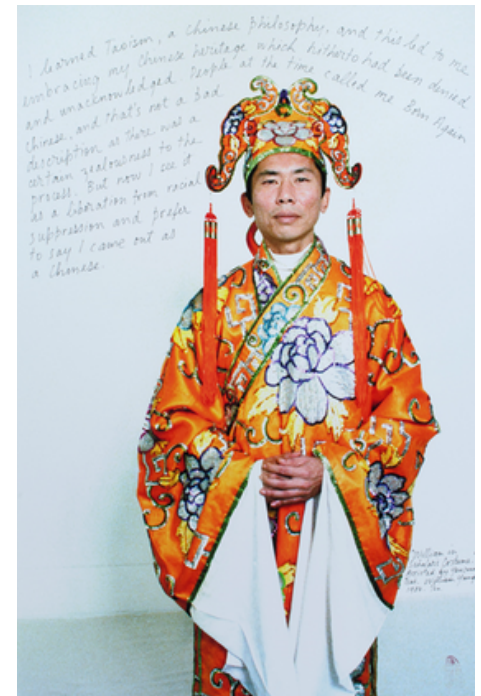 I learned Taoism, a Chinese philosophy, and this led to me
embracing my Chinese heritage which hitherto had been denied
and unacknowledged. People at the time called me Born Again
Chinese, and that's not a bad
description as there was a
certain zealousness to the
process. But now I see it
as a liberation from racial
suppression and prefer
to say I came out as
a Chinese.
"William in
Scholars Costume.